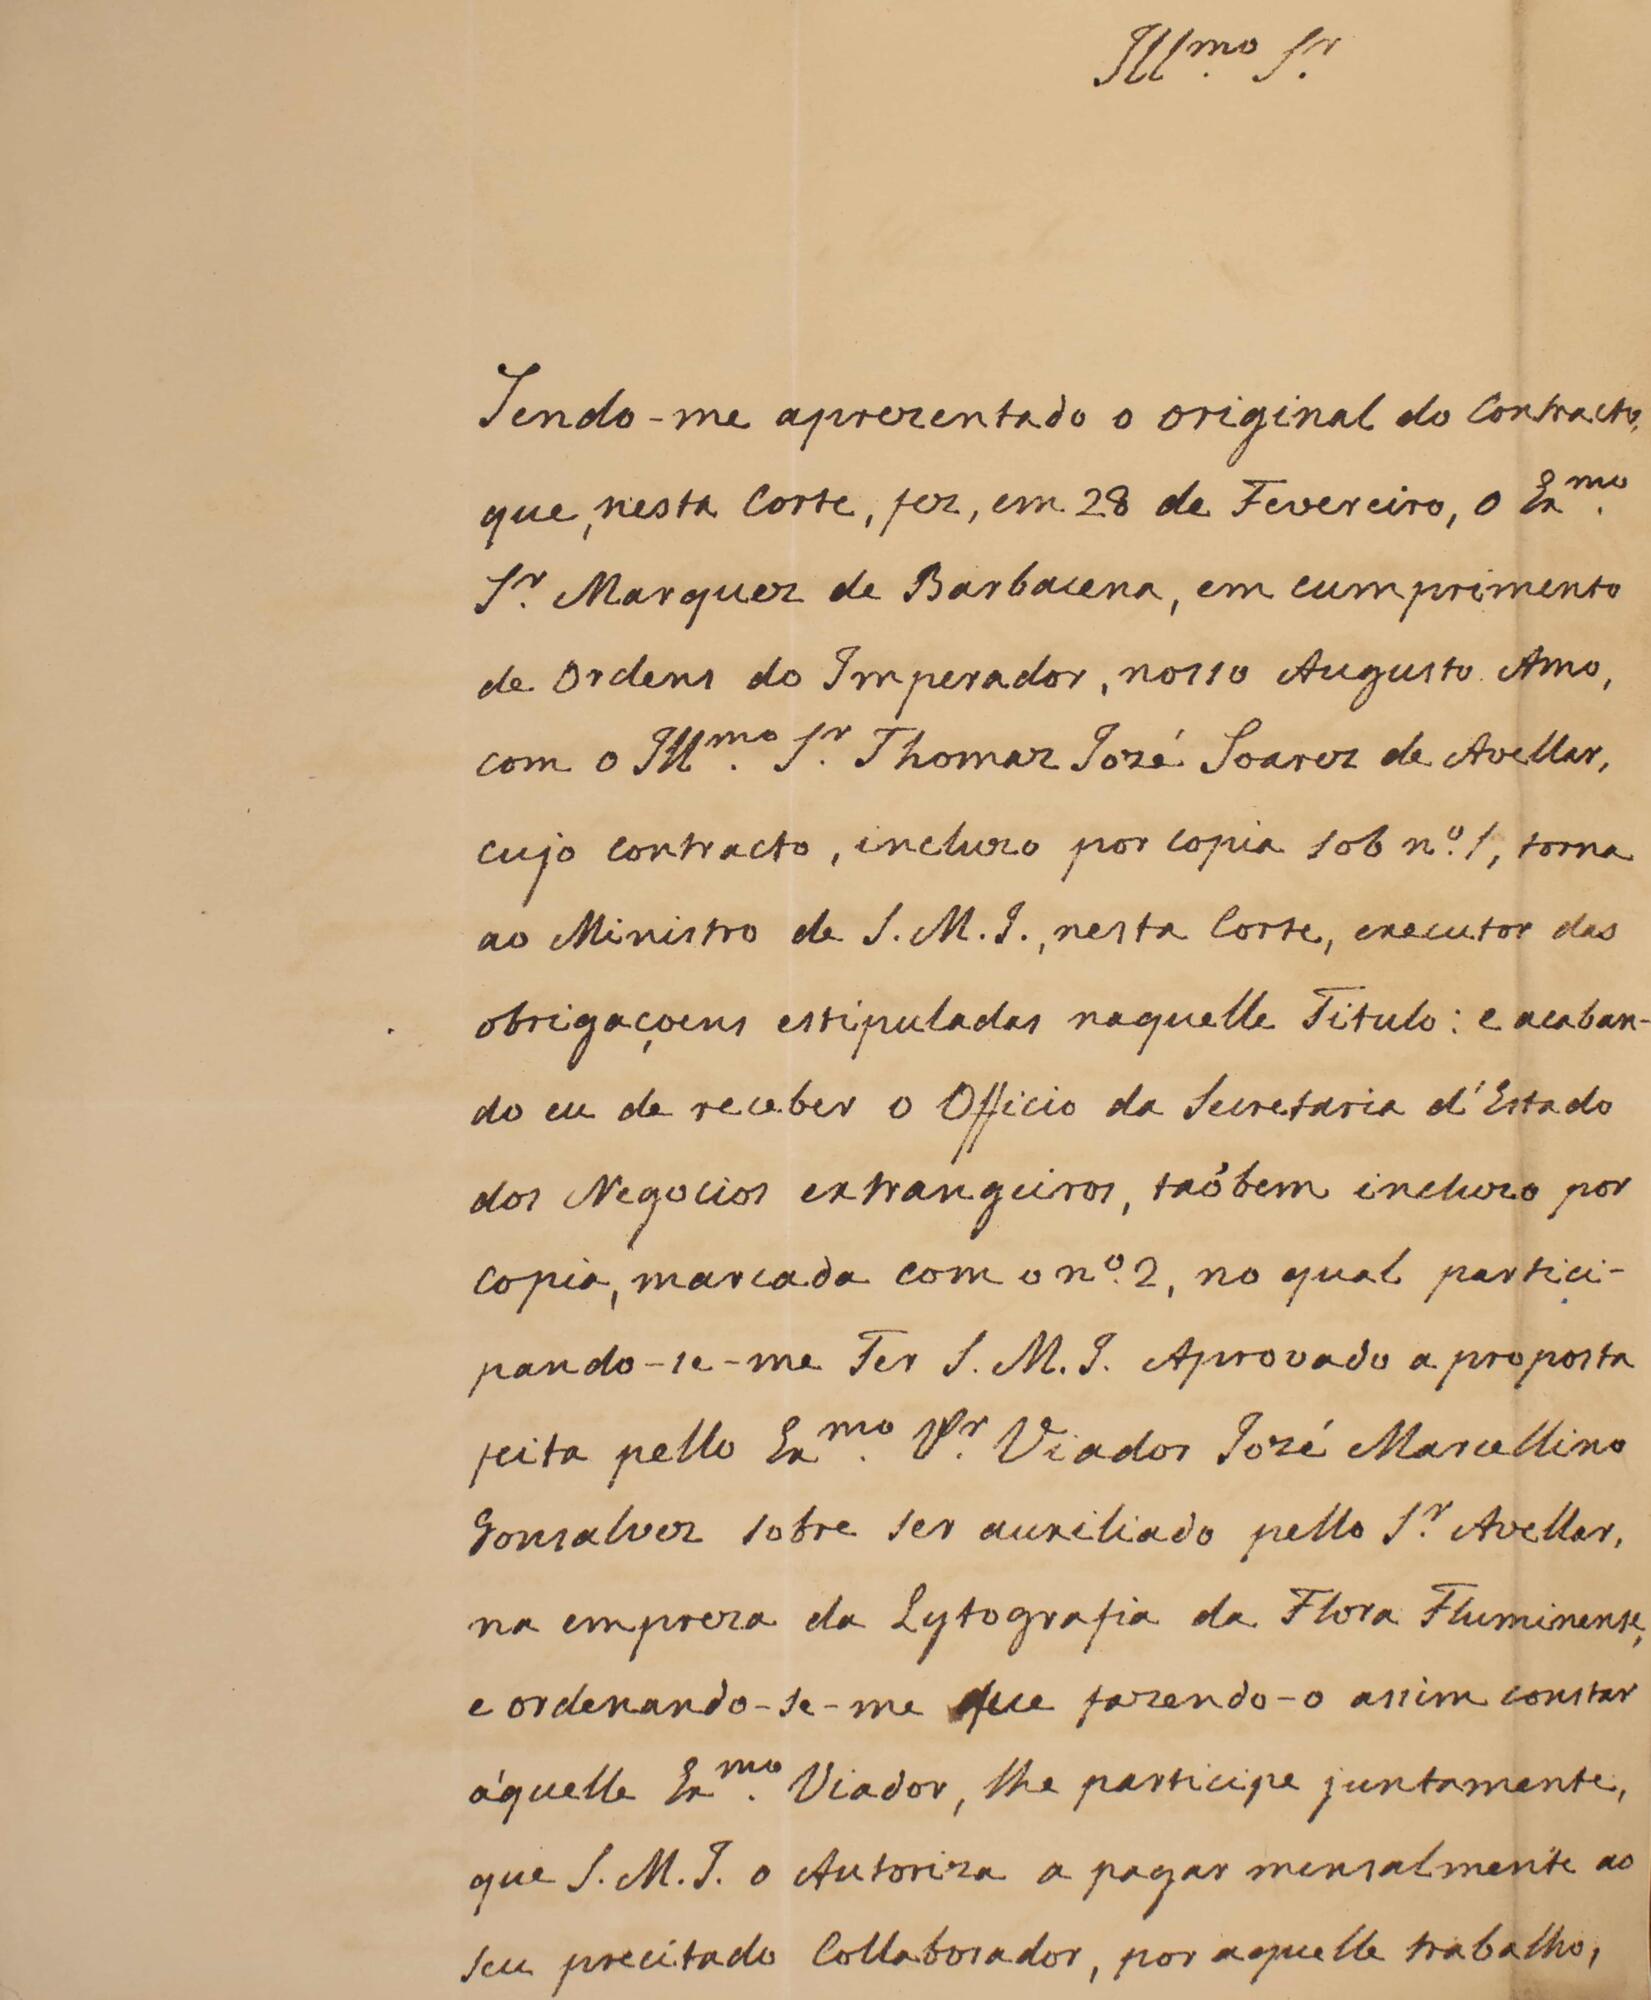 Illmo. Sr.
Tendo-me aprezentado o original do Contracto,
que, nesta Corte, fez, em 28 de Fevereiro, o Exmo.
Sr. Marquez de Barbacena, em cumprimento
de Ordens do Imperador, nosso Augusto Amo,
com o Illmo. Sr. Thomaz Jozé Soarez de Avellar,
cujo contracto, incluzo por copia sob no. 1, torna
ao Ministro de S. M. I., nesta Corte, executor das
obrigaçoens estipuladas naquelle Titulo: e acaban-
do eu de receber o Officio da Secretaria d'Estado
dos Negocios extrangeiros, taõbem incluzo por
copia, marcada com o no. 2, no qual partici-
pando-se-me Ter S. M. I. Aprovado a proposta
feita pello Exmo. Sr. Viador Jozé Marcellino
Gonsalvez sobre ser auxiliado pello Sr. Avellar,
na empreza da Lytografia da Flora Fluminense,
e ordenando-se-me que fazendo-o assim constar
áquelle Exmo. Viador, lhe participe juntamente,
que S. M. I. o Autoriza a pagar mensalmente ao
seu precitado Collaborador, por aquelle trabalho,